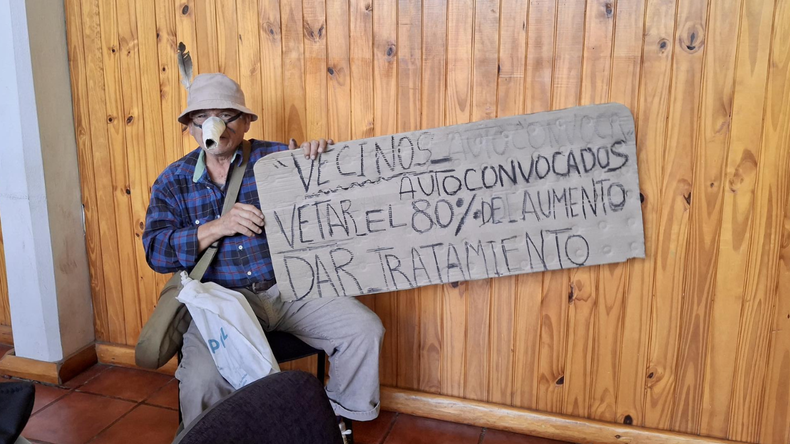 "VECINOS_AUTOCONVOCA
AUTOCONVOCADOS
VETAR EL 80% DEL AUMENTO
DAR_TRATAMIENTO